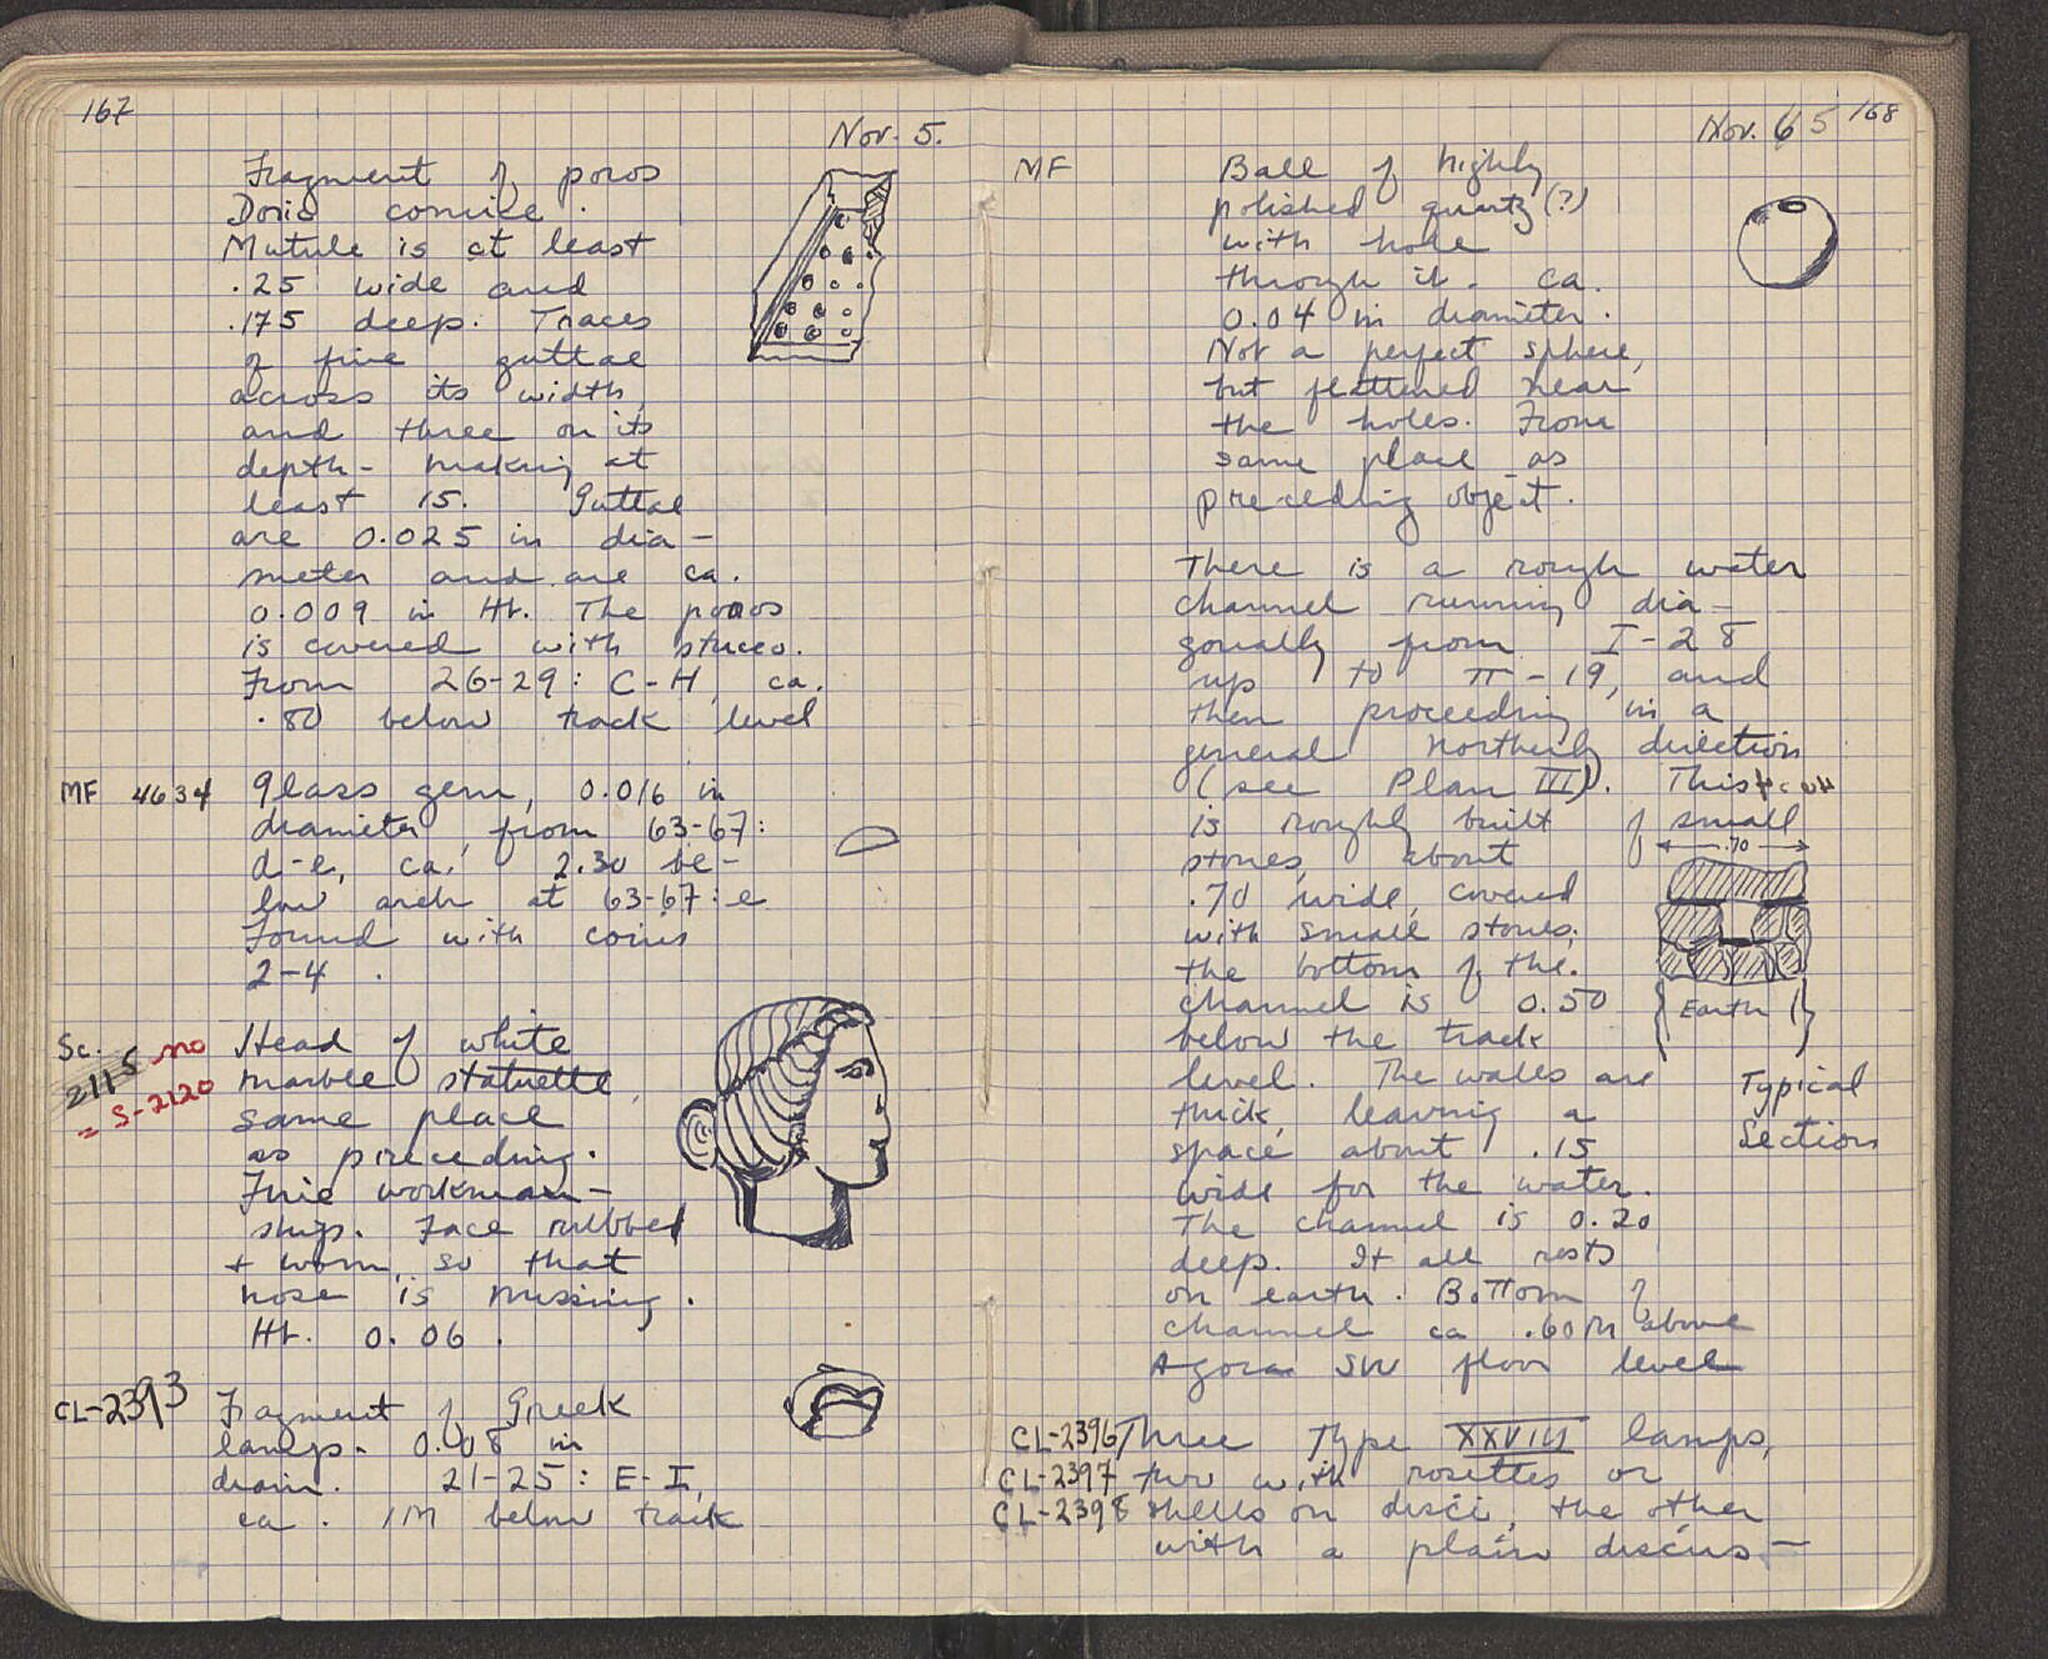 167
Nov. 5.
Fragment of poros
Doric cornice.
Mutule is at least
.25 wide and
.175 deep. Traces
of five guttae
across its width,
and three on its
depth - making at
least 15. Guttae
are 0.025 in dia-
meter and are ca.
0.009 in Ht. The poros
is covered with stucco.
From 26-29: C-H, ca.
.80 below track level
MF 4634 Glass gem, 0.016 in
diameter, from 63-67:
d-e, ca. 2.30 be-
low arch at 63-67:e
Found with coins
2-4.
Sc. 2115 no
= S-2120
Head of white
marble statuette,
same place
as preceding.
Fine workman-
ship. Face rubbed
+ worn, so that
nose is missing.
Ht. 0.06.
CL-2393 Fragment of Greek
lamp. 0.08 in
diam. 21-25: E-I,
ca. 1m below track
Nov. 6 5 168
MF Ball of highly
polished quartz (?)
with hole
through it. ca.
0.04 in diameter.
Not a perfect sphere,
but flattened near
the holes. From
same place as
preceding object.
There is a rough water
channel running dia-
gonally from I-28
up to π-19, and
then proceeding in a
general northerly direction
(see Plan III). This
is roughly built of small
stones, about
.70 wide, covered
with small stones;
the bottom of the
channel is 0.50
below the track
level. The walls are
thick, leaving a
space about .15
wide for the water.
The channel is 0.20
deep. It all rests
on earth. Bottom of
channel ca .60m above
Agora SW floor level
.70
Earth
Typical
Section
CL-2396 Three Type XXVIII lamps,
CL-2397 two with rosettes or
CL-2398 shells on disci, the other
with a plain discus -